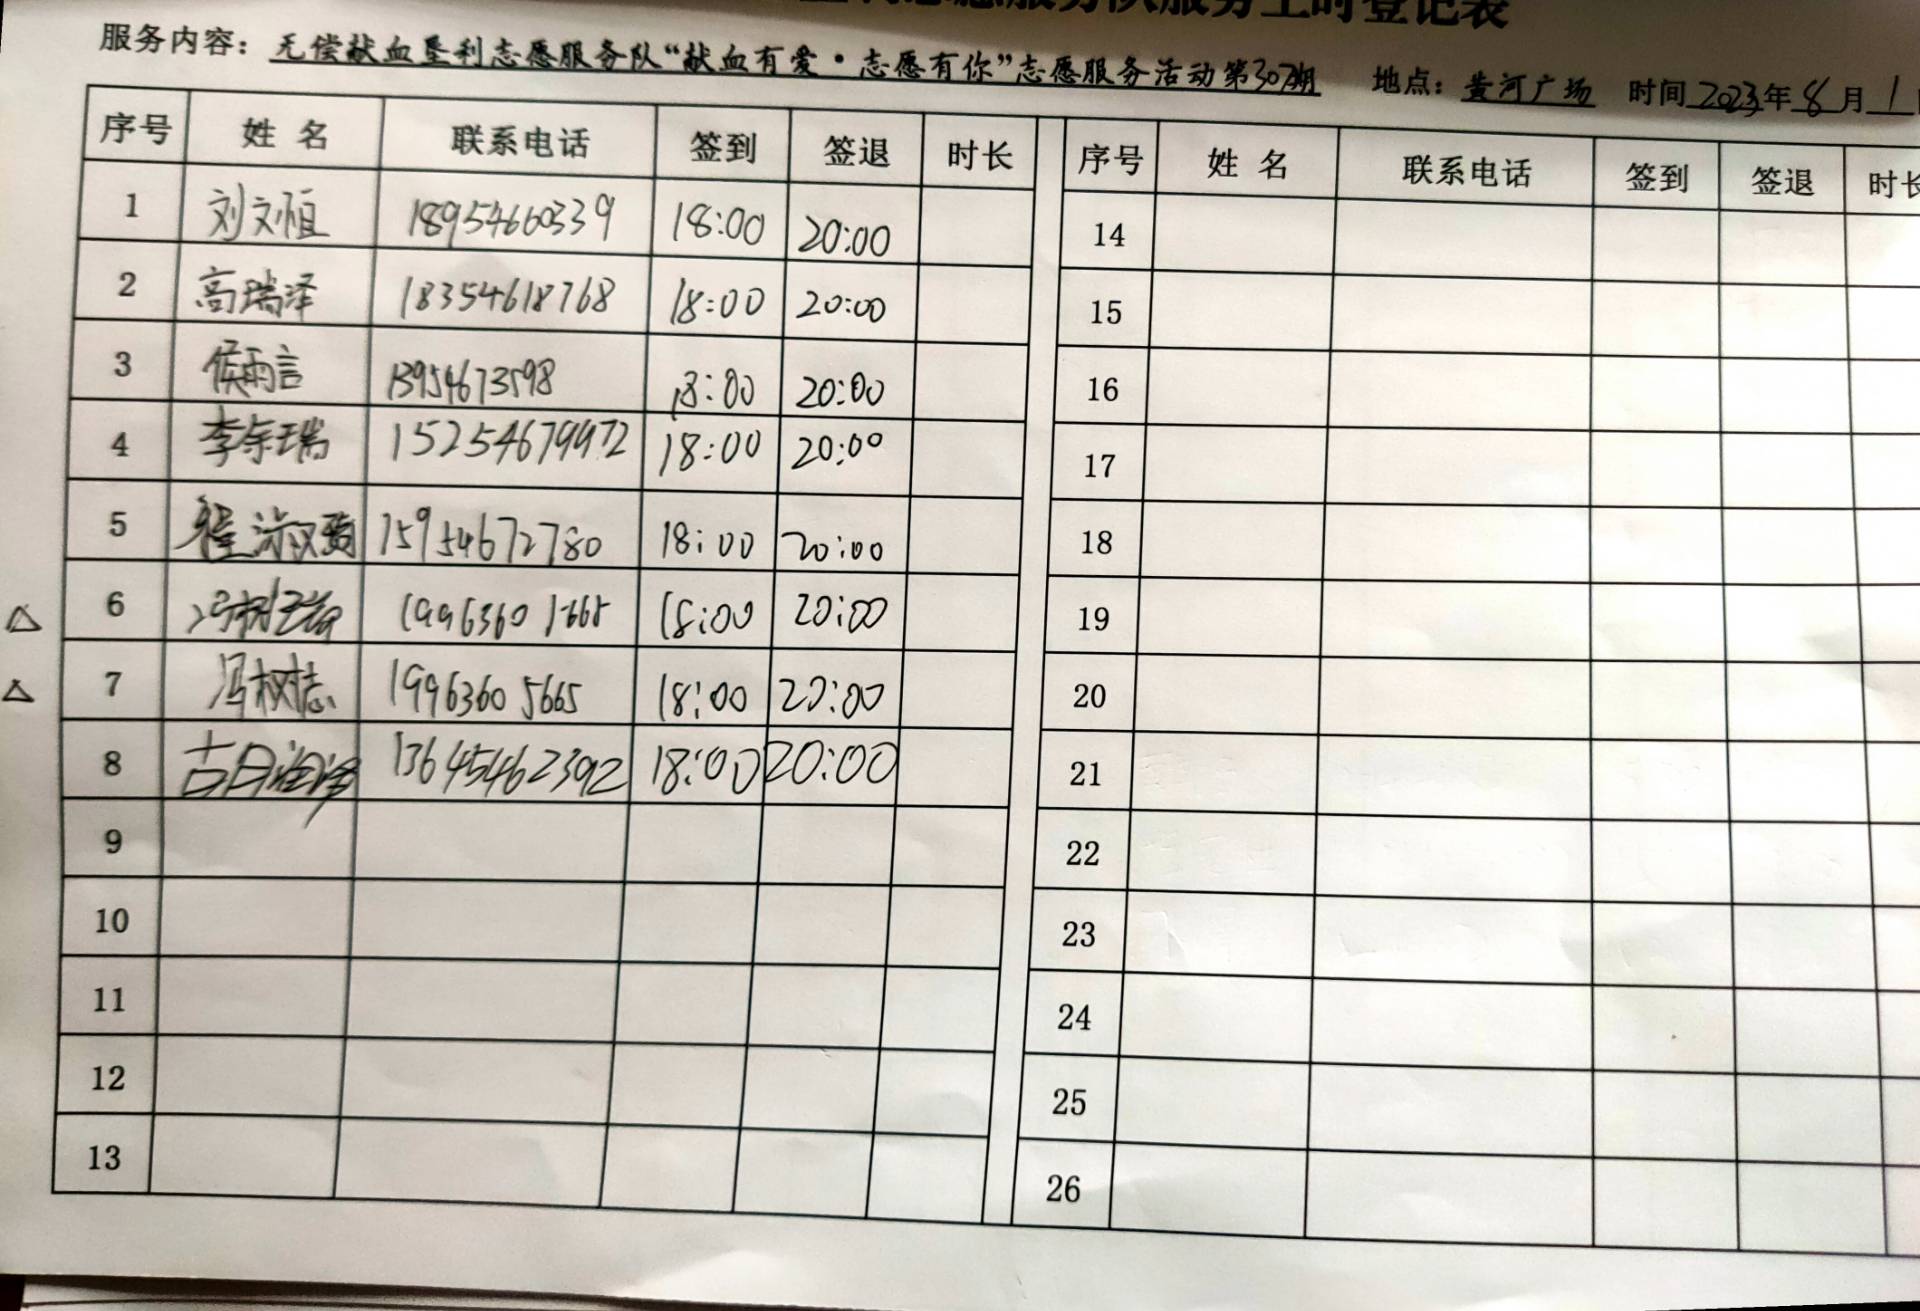 志愿服务队服务工时登记表
服务内容：无偿献血垦利志愿服务队“献血有爱·志愿有你”志愿服务活动第307期 地点：黄河广场 时间 2023年8月1
序号 姓名 联系电话 签到 签退 时长 序号 姓名 联系电话 签到 签退 时长
1 刘文恒 18954660339 18:00 20:00 14
2 高瑞泽 18354618768 18:00 20:00 15
3 侯雨言 13954673598 18:00 20:00 16
4 李宗瑞 15254679972 18:00 20:00 17
5 程淑贤 15954672780 18:00 20:00 18
△ 6 冯树 18:00 20:00 19
△ 7 冯树志 19963605665 18:00 20:00 20
8 13645462392 18:00 20:00 21
9 22
10 23
11 24
12 25
13 26